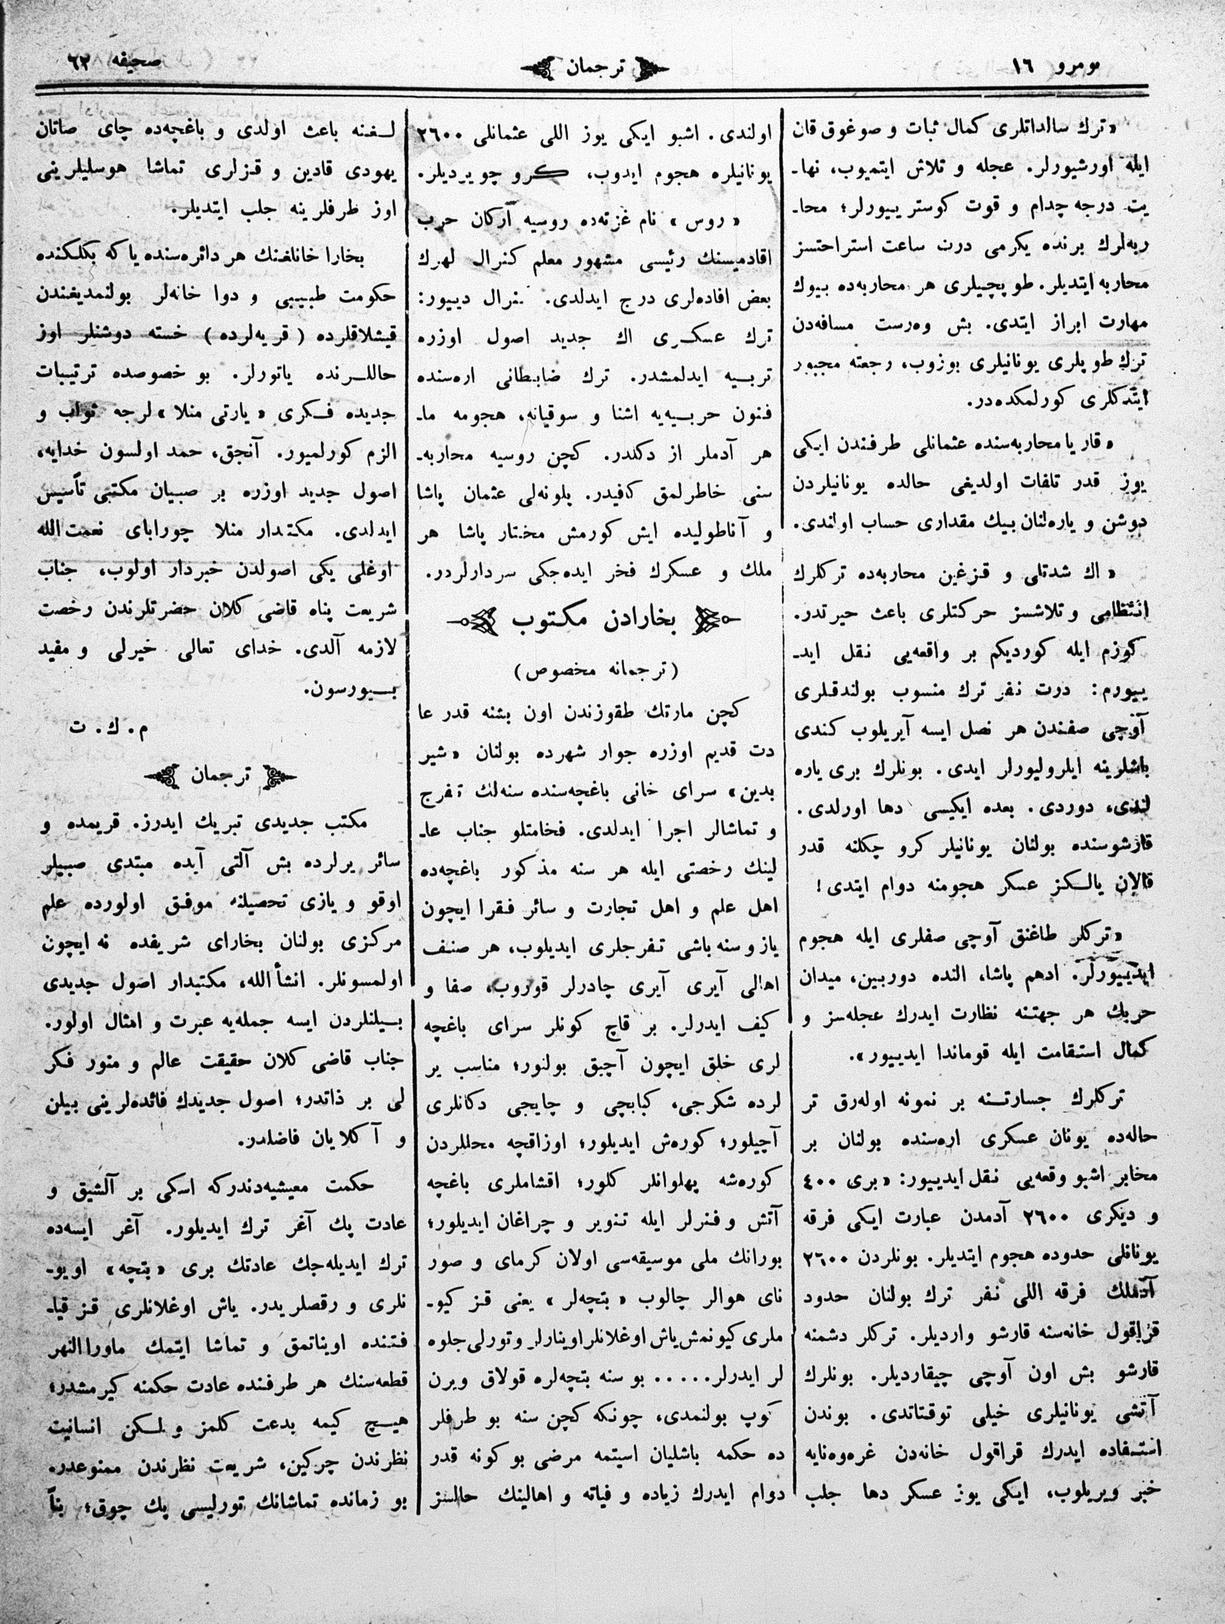 نومرو ١٦
ترجمان
صحیفه ٦٢
«ترك سالداتلری كمال ثبات و صوغوق قان
ایله اورشیورلر. عجله و تلاش ایتمیوب، نها-
یت درجه چدام و قوت كوستریورلر؛ محا-
ربه‌لرك برنده یكرمی درت ساعت استراحتسز
محاربه ایتدیلر. طوپچیلری هر محاربه‌ده بیوك
مهارت ابراز ایتدی. بش وه‌رست مسافه‌دن
ترك طوپلری یونانیلری بوزوب، رجعته مجبور
ایتدكلری كورلمكده‌در.
«قاریا محاربه‌سنده عثمانلی طرفندن ایكی
یوز قدر تلفات اولدیغی حالده یونانیلردن
دوشن و یاره‌لنان بیك مقداری حساب اولندی.
«اك شدتلی و قزغین محاربه‌ده تركلرك
انتظامی و تلاشسز حركتلری باعث حیرتدر.
كوزم ایله كوردیكم بر واقعه‌یی نقل اید-
ییورم: درت نفر ترك منسوب بولندقلری
آوجی صفندن هر نصل ایسه آیریلوب كندی
باشلرینه ایلرولیورلر ایدی. بونلرك بری یاره
لندی، دوردی. بعده ایكیسی دها اورلدی.
قارشوسنده بولنان یونانیلر كرو چكلنه قدر
قالان یالكز عسكر هجومنه دوام ایتدی!
«تركلر طاغنق آوجی صفلری ایله هجوم
ایدییورلر. ادهم پاشا، النده دوربین، میدان
حربك هر جهتنه نظارت ایدرك عجله‌سز و
كمال استقامت ایله قوماندا ایدییور».
تركلرك جسارتنه بر نمونه اوله‌رق تر
حاله‌ده یونان عسكری اره‌سنده بولنان بر
مخابر اشبو وقعه‌یی نقل ایدییور: «بری ٤٠٠
و دیكری ٢٦٠٠ آدمدن عبارت ایكی فرقه
یونانلی حدوده هجوم ایتدیلر. بونلردن ٢٦٠٠
آدملك فرقه اللی نفر ترك بولنان حدود
قراقول خانه‌سنه قارشو واردیلر. تركلر دشمنه
قارشو بش اون آوجی چیقاردیلر. بونلرك
آتشی یونانیلری خیلی توقتاتدی. بوندن
استفاده ایدرك قراقول خانه‌دن غره‌وه‌نایه
خبر ویریلوب، ایكی یوز عسكر دها جلب
اولندی. اشبو ایكی یوز اللی عثمانلی ٢٦٠٠
یونانیلره هجوم ایدوب، كرو چویردیلر.
«روس» نام غزته‌ده روسیه آركان حرب
اقادمیسنك رئیسی مشهور معلم كنرال لهرك
بعض افاده‌لری درج ایدلدی. كنرال دییور:
ترك عسكری اك جدید اصول اوزره
تربیه ایدلمشدر. ترك ضابطانی اره‌سنده
فنون حربیه‌یه اشنا و سوقیاته، هجومه ما-
هر آدملر از دكلدر. كچن روسیه محاربه-
سنی خاطرلمق كافیدر. پلونه‌لی عثمان پاشا
و آناطولیده ایش كورمش مختار پاشا هر
ملك و عسكرك فخر ایده‌جكی سردارلردر.
بخارادن مكتوب
(ترجمانه مخصوص)
كچن مارتك طقوزندن اون بشنه قدر عا
دت قدیم اوزره جوار شهرده بولنان «شیر
بدین» سرای خانی باغچه‌سنده سنه‌لك تفرج
و تماشالر اجرا ایدلدی. فخامتلو جناب عا-
لینك رخصتی ایله هر سنه مذكور باغچه‌ده
اهل علم و اهل تجارت و سائر فقرا ایچون
یاز و سنه باشی تفرجلری ایدیلوب، هر صنف
اهالی آیری آیری چادرلر قوروب، صفا و
كیف ایدرلر. بر قاچ كونلر سرای باغچه
لری خلق ایچون آچیق بولنور؛ مناسب یر
لرده شكرجی، كبابچی و چایجی دكانلری
آچیلور؛ كوره‌ش ایدیلور؛ اوزاقچه محللردن
كوره‌شه پهلوانلر كلور؛ اقشاملری باغچه
آتش و فنرلر ایله تنویر و چراغان ایدیلور؛
بورانك ملی موسیقه‌سی اولان كرمای و صور
نای هوالر چالوب «بتچه‌لر» یعنی قز كیو-
ملری كیونمش یاش اوغلانلر اوینارلر و تورلی جلوه
لر ایدرلر..... بو سنه بتچه‌لره قولاق ویرن
كوپ بولنمدی، چونكه كچن سنه بو طرفلر
ده حكمه باشلیان اسیتمه مرضی بو كونه قدر
دوام ایدرك زیاده و فیاته و اهالینك حالسز
لغنه باعث اولدی و باغچه‌ده چای صاتان
یهودی قادین و قزلری تماشا هوسلیلرینی
اوز طرفلرینه جلب ایتدیلر.
بخارا خانلغنك هر دائره‌سنده یا كه بكلكنده
حكومت طبیبی و دوا خانه‌لر بولنمدیغندن
قیشلاقلرده (قریه‌لرده) خسته دوشنلر اوز
حاللرنده یاتورلر. بو خصوصده ترتیبات
جدیده فكری «یارتی منلا»لرجه ثواب و
الزم كورلمیور. آنجق، حمد اولسون خدایه،
اصول جدید اوزره بر صبیان مكتبی تأسیس
ایدلدی. مكتبدار منلا چورابای نعمت الله
اوغلی یكی اصولدن خبردار اولوب، جناب
شریعت پناه قاضی كلان حضرتلرندن رخصت
لازمه آلدی. خدای تعالی خیرلی و مفید
بیورسون.
م. ك. ت
ترجمان
مكتب جدیدی تبریك ایدرز. قریمده و
سائر یرلرده بش آلتی آیده مبتدی صبیلر
اوقو و یازی تحصیلنه موفق اولورده علم
مركزی بولنان بخارای شریفده نه ایچون
اولمسونلر. انشأ الله، مكتبدار اصول جدیدی
بیلنلردن ایسه جمله‌یه عبرت و امثال اولور.
جناب قاضی كلان حقیقت عالم و منور فكر
لی بر ذاتدر؛ اصول جدیدك فائده‌لرینی بیلن
و آكلایان فاضلدر.
حكمت معیشیه‌دندركه اسكی بر آلشیق و
عادت پك آغر ترك ایدیلور. آغر ایسه‌ده
ترك ایدیله‌جك عادتك بری «بتچه» اویو-
نلری و رقصلریدر. یاش اوغلانلری قز قیا-
فتنده اویناتمق و تماشا ایتمك ماورا النهر
قطعه‌سنك هر طرفنده عادت حكمنه كیرمشدر؛
هیچ كیمه بدعت كلمز و لكن انسانیت
نظرندن چركین، شریعت نظرندن ممنوعدر.
بو زمانده تماشانك تورلیسی پك چوق؛ بنأ